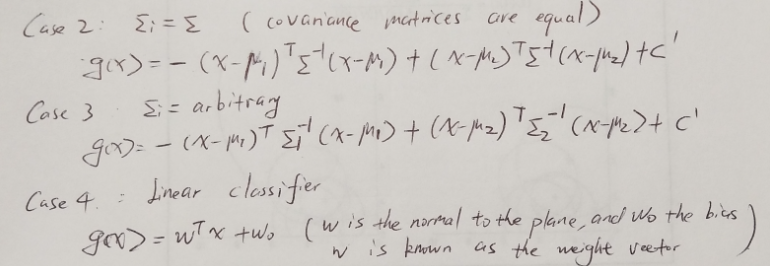 Case 2: Σi = Σ ( covariance matrices are equal)
g(x) = - (x-μ1)ᵀΣ⁻¹(x-μ1) + (x-μ2)ᵀΣ⁻¹(x-μ2) + C'
Case 3 Σi = arbitrary
g(x) = - (x-μ1)ᵀ Σ1⁻¹ (x-μ1) + (x-μ2)ᵀ Σ2⁻¹ (x-μ2) + C'
Case 4. : Linear classifier
g(x) = wᵀx + w0 ( w is the normal to the plane, and w0 the bias
w is known as the weight vector )